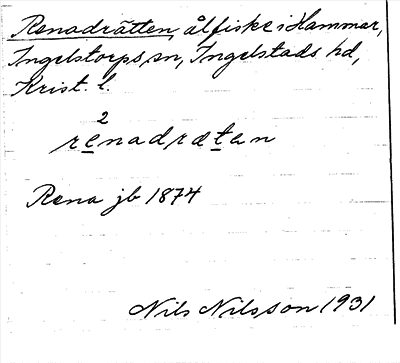 Renadrätten, ålfiske i Hammar,
Ingelstorps sn, Ingelstads hd,
Krist. l.
2
renadrætan
Rena jb 1874
Nils Nilsson 1931